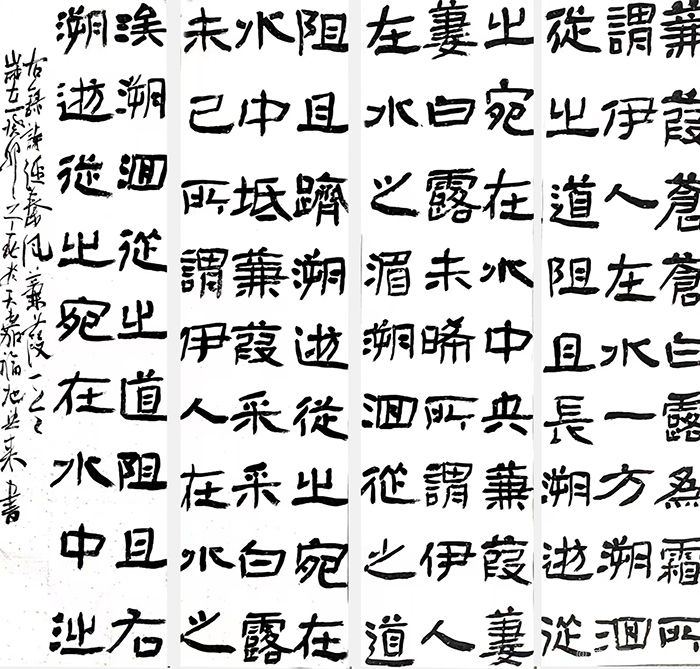 蒹葭蒼蒼白露為霜所
謂伊人在水一方溯洄
從之道阻且長溯遊從
之宛在水中央蒹葭萋
萋白露未晞所謂伊人
在水之湄溯洄從之道
阻且躋溯遊從之宛在
水中坻蒹葭采采白露
未已所謂伊人在水之
涘溯洄從之道阻且右
溯遊從之宛在水中沚
右錄詩經秦風蒹葭一
歲在癸卯之 書